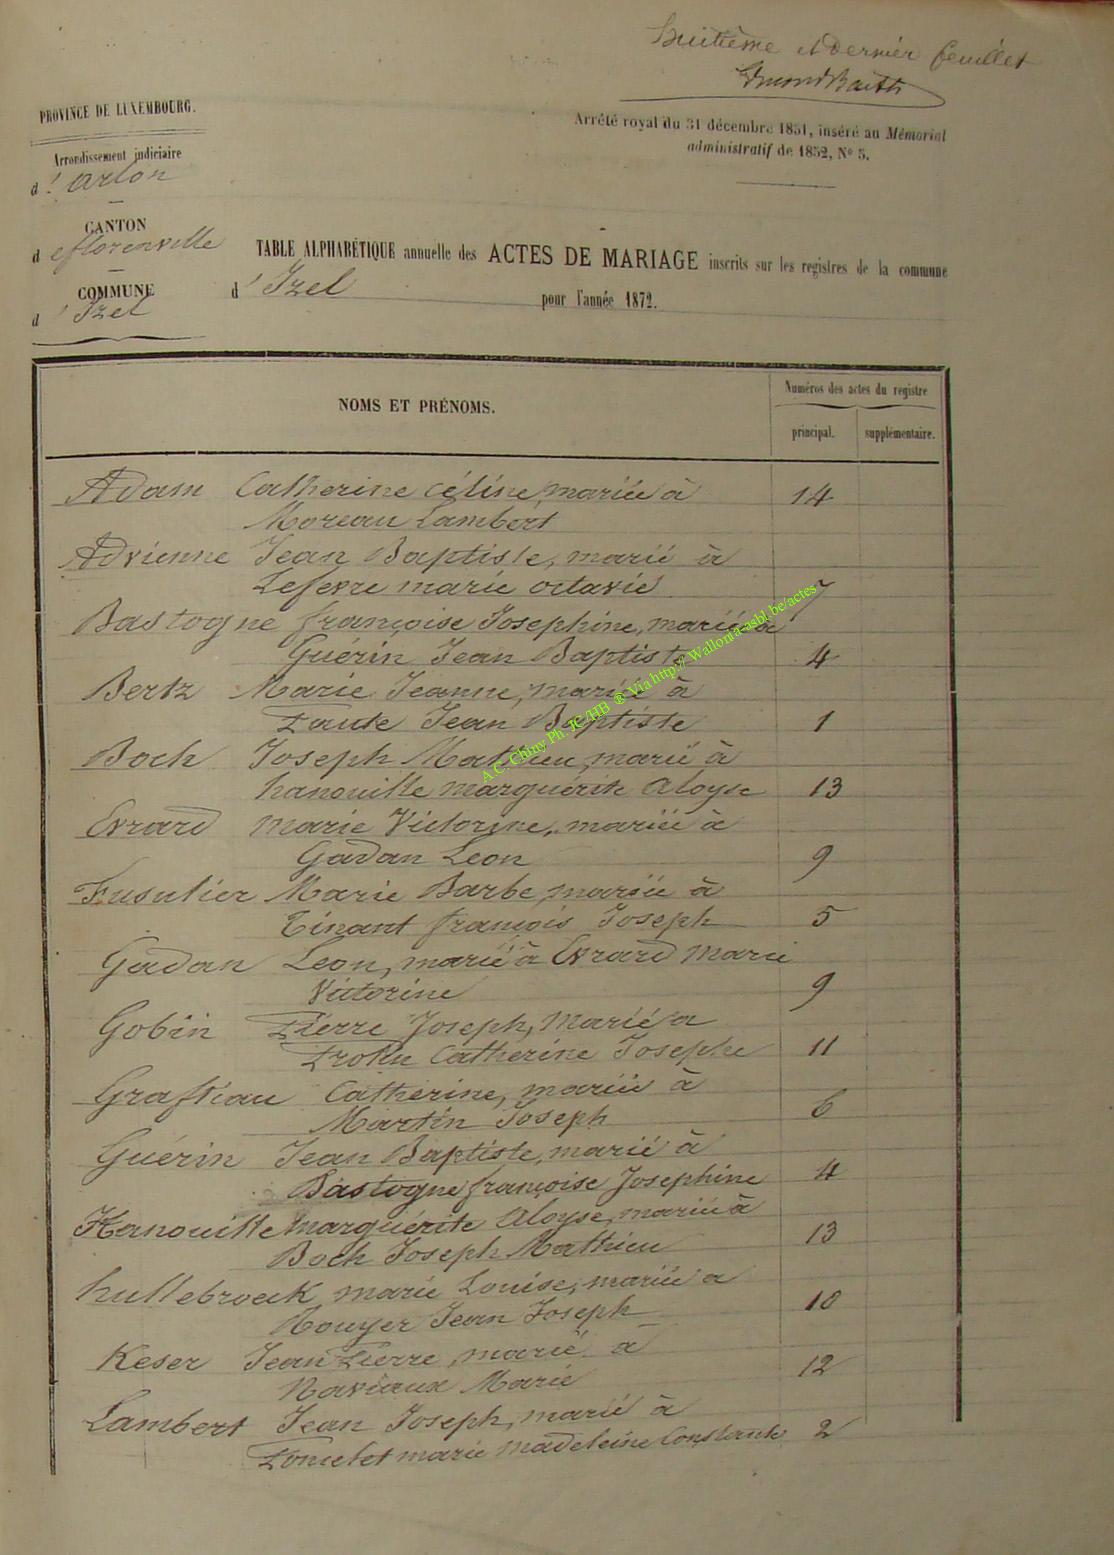 huitième et dernier feuillet
PROVINCE DE LUXEMBOURG.
Arrêté royal du 31 décembre 1851, inséré au Mémorial
administratif de 1852, N° 5.
Arrondissement judiciaire
d' arlon
CANTON
de florenville
COMMUNE
d' Izel
TABLE ALPHABÉTIQUE annuelle des ACTES DE MARIAGE inscrits sur les registres de la commune
d' Izel pour l'année 1872.
NOMS ET PRÉNOMS.
Numéros des actes du registre
principal. supplémentaire.
Adam Catherine Céline, mariée à
Moreau Lambert 14
Advienne Jean Baptiste, marié à
Lefevre marie octavie 7
Bastogne françoise Josephine, mariée à
Guérin Jean Baptiste 4
Bertz Marie Jeanne, mariée à
Jean Baptiste 1
Boch Joseph Mathieu, marié à
hanouille marguérite aloyse 13
Evrard marie Victorine, mariée à
Gadan Leon 9
Fusulier Marie Barbe, mariée à
Tinant françois Joseph 5
Gadan Leon, marié à Evrard Marie
Victorine 9
Gobin Pierre Joseph, Marié a
Catherine Josephe 11
Graftiau Catherine, mariée à
Martin Joseph 6
Guérin Jean Baptiste, marié à
Bastogne françoise Josephine 4
Hanouille marguérite aloyse, mariée à
Boch Joseph Mathieu 13
hullebroeck marie Louise, mariée a
Rouyer Jean Joseph 10
Keser Jean Pierre, marié à
Naviaux Marie 12
Lambert Jean Joseph, marié à
Poncelet marie madeleine Constante 2
A.C. Chiny Ph. JC/HB ® Via http:// Wallonia-asbl.be/actes